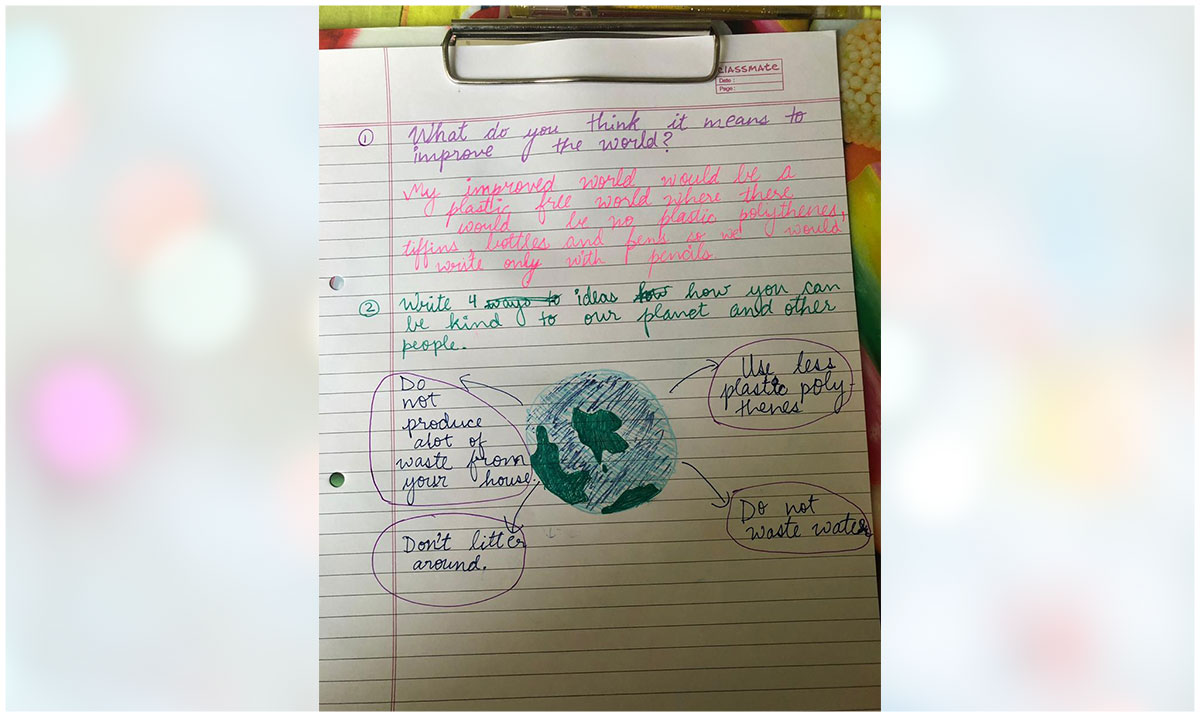 classmate
Date :
Page :
① What do you think it means to
improve the world?
My improved world would be a
plastic free world where there
would be no plastic polythenes,
tiffins, bottles and pens so we would
write only with pencils.
② Write 4 ways to ideas how how you can
be kind to our planet and other
people.
Do
not
produce
alot of
waste from
your house.
Use less
plastic poly-
thenes
Don't litter
around.
Do not
waste water